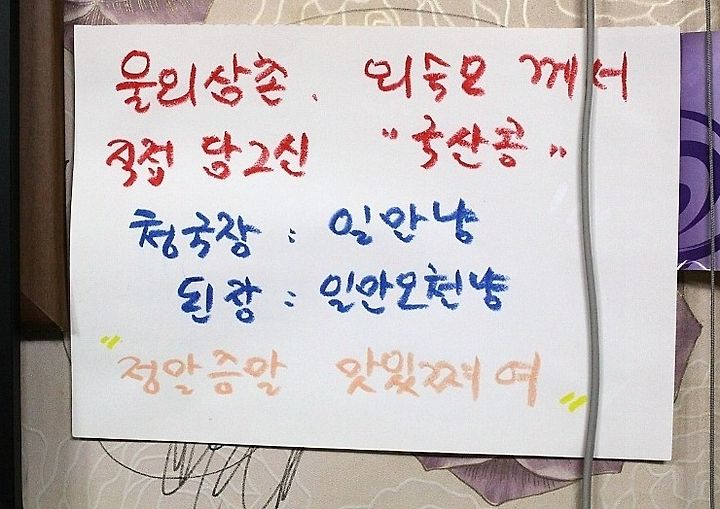 울외삼촌. 외숙모 께서
직접 담그신 "국산콩"
청국장 : 일만냥
된장 : 일만오천냥
"정말증말 맛있쪄여"